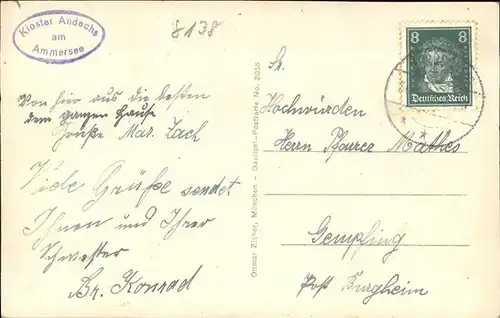 Kloster Andechs
am
Ammersee
8138
Von hier aus die besten
dem ganzen Hause
Grüße Max. Zach
Viele Grüße sendet
Ihnen und Ihrer
Schwester
Br. Konrad
Ottmar Zieher, München - Gaslicht-Postkarte No. 2056
8 8
Deutsches Reich
Sr.
Hochwürden
Herrn Pfarrer Mathes
Gempfing
Post Burgheim